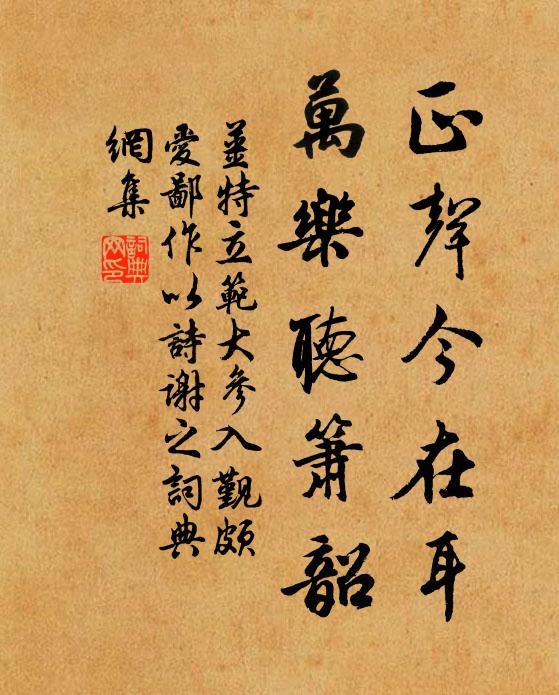 正聲今在耳
萬樂聽簫韶
姜特立範大參入覲頗
愛鄙作以詩謝之詞典
網集
詞典網印